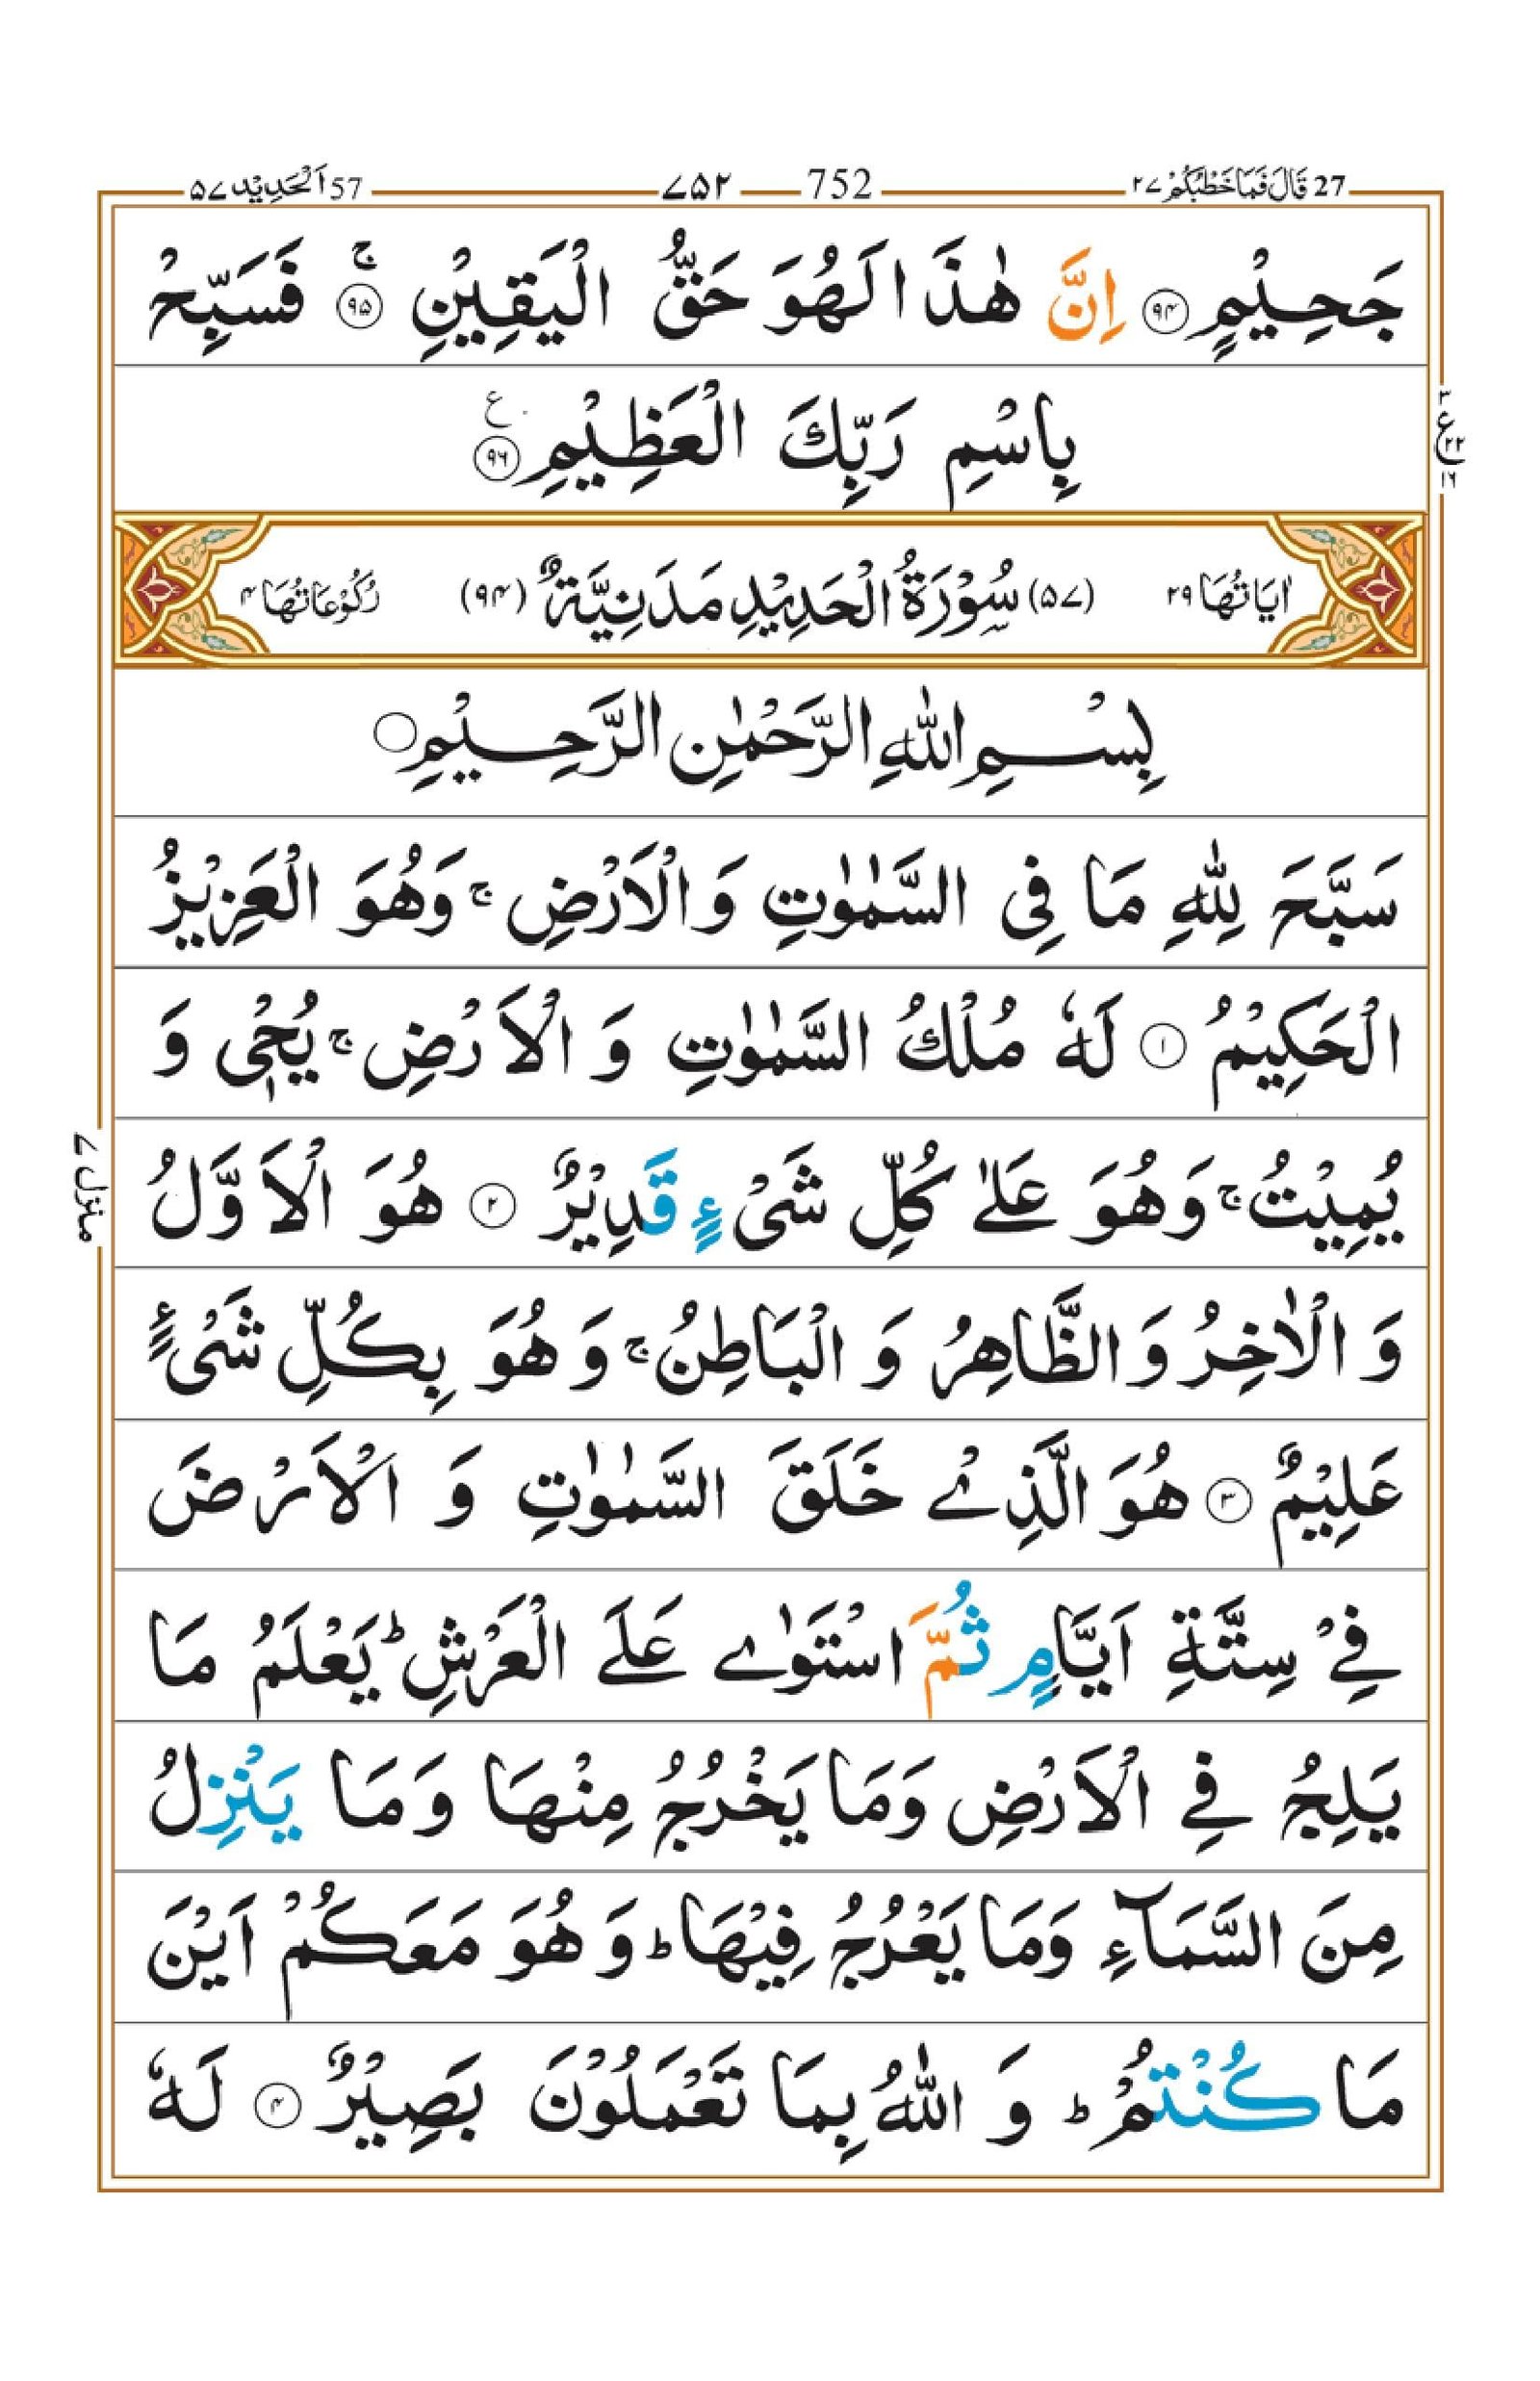 27 قَالَ فَمَا خَطْبُكُمْ ۲۷ 752 ۷۵۲ 57 اَلْحَدِيْد ۵۷
جَحِيْمٍ ۹۴ اِنَّ هٰذَا لَهُوَ حَقُّ الْيَقِيْنِ ۚ ۹۵ فَسَبِّحْ
بِاسْمِ رَبِّكَ الْعَظِيْمِ ۹۶ ع
۳ ع ۲۲ ۱۶
اٰيَاتُهَا ۲۹ (۵۷) سُوْرَةُ الْحَدِيْدِ مَدَنِيَّةٌ (۹۴) رُكُوْعَاتُهَا ۴
بِسْمِ اللّٰهِ الرَّحْمٰنِ الرَّحِيْمِ
سَبَّحَ لِلّٰهِ مَا فِى السَّمٰوٰتِ وَالْاَرْضِ ۚ وَهُوَ الْعَزِيْزُ
الْحَكِيْمُ ۱ لَهٗ مُلْكُ السَّمٰوٰتِ وَ الْاَرْضِ ۚ يُحْىٖ وَ
يُمِيْتُ ۚ وَهُوَ عَلٰى كُلِّ شَىْءٍ قَدِيْرٌ ۲ هُوَ الْاَوَّلُ
وَ الْاٰخِرُ وَ الظَّاهِرُ وَ الْبَاطِنُ ۚ وَ هُوَ بِكُلِّ شَىْءٍ
عَلِيْمٌ ۳ هُوَ الَّذِىْ خَلَقَ السَّمٰوٰتِ وَ الْاَرْضَ
فِىْ سِتَّةِ اَيَّامٍ ثُمَّ اسْتَوٰى عَلَى الْعَرْشِ ؕ يَعْلَمُ مَا
يَلِجُ فِى الْاَرْضِ وَمَا يَخْرُجُ مِنْهَا وَمَا يَنْزِلُ
مِنَ السَّمَآءِ وَمَا يَعْرُجُ فِيْهَا ؕ وَ هُوَ مَعَكُمْ اَيْنَ
مَا كُنْتُمْ ؕ وَ اللّٰهُ بِمَا تَعْمَلُوْنَ بَصِيْرٌ ۴ لَهٗ
منزل ۷